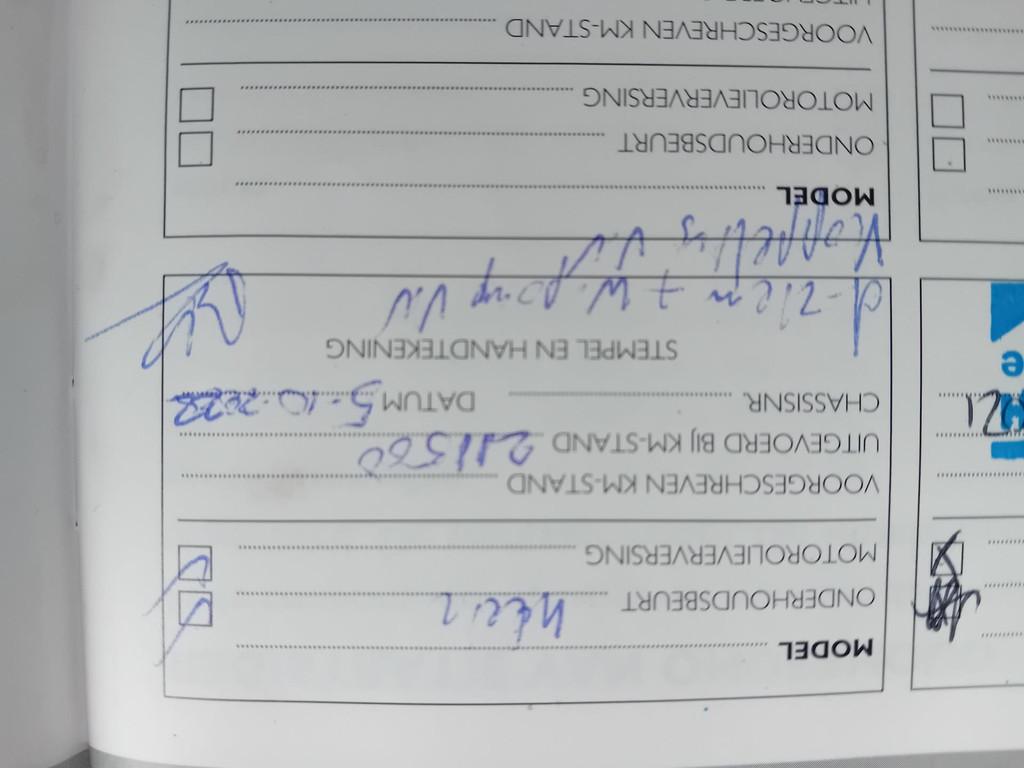 MODEL
ONDERHOUDSBEURT
MOTOROLIEVERVERSING
VOORGESCHREVEN KM-STAND
UITGEVOERD BIJ KM-STAND 211500
CHASSISNR. DATUM 5-10-2022
STEMPEL EN HANDTEKENING
d-riem + W.pomp V.V
Koppeling V.V
MODEL
ONDERHOUDSBEURT
MOTOROLIEVERVERSING
VOORGESCHREVEN KM-STAND